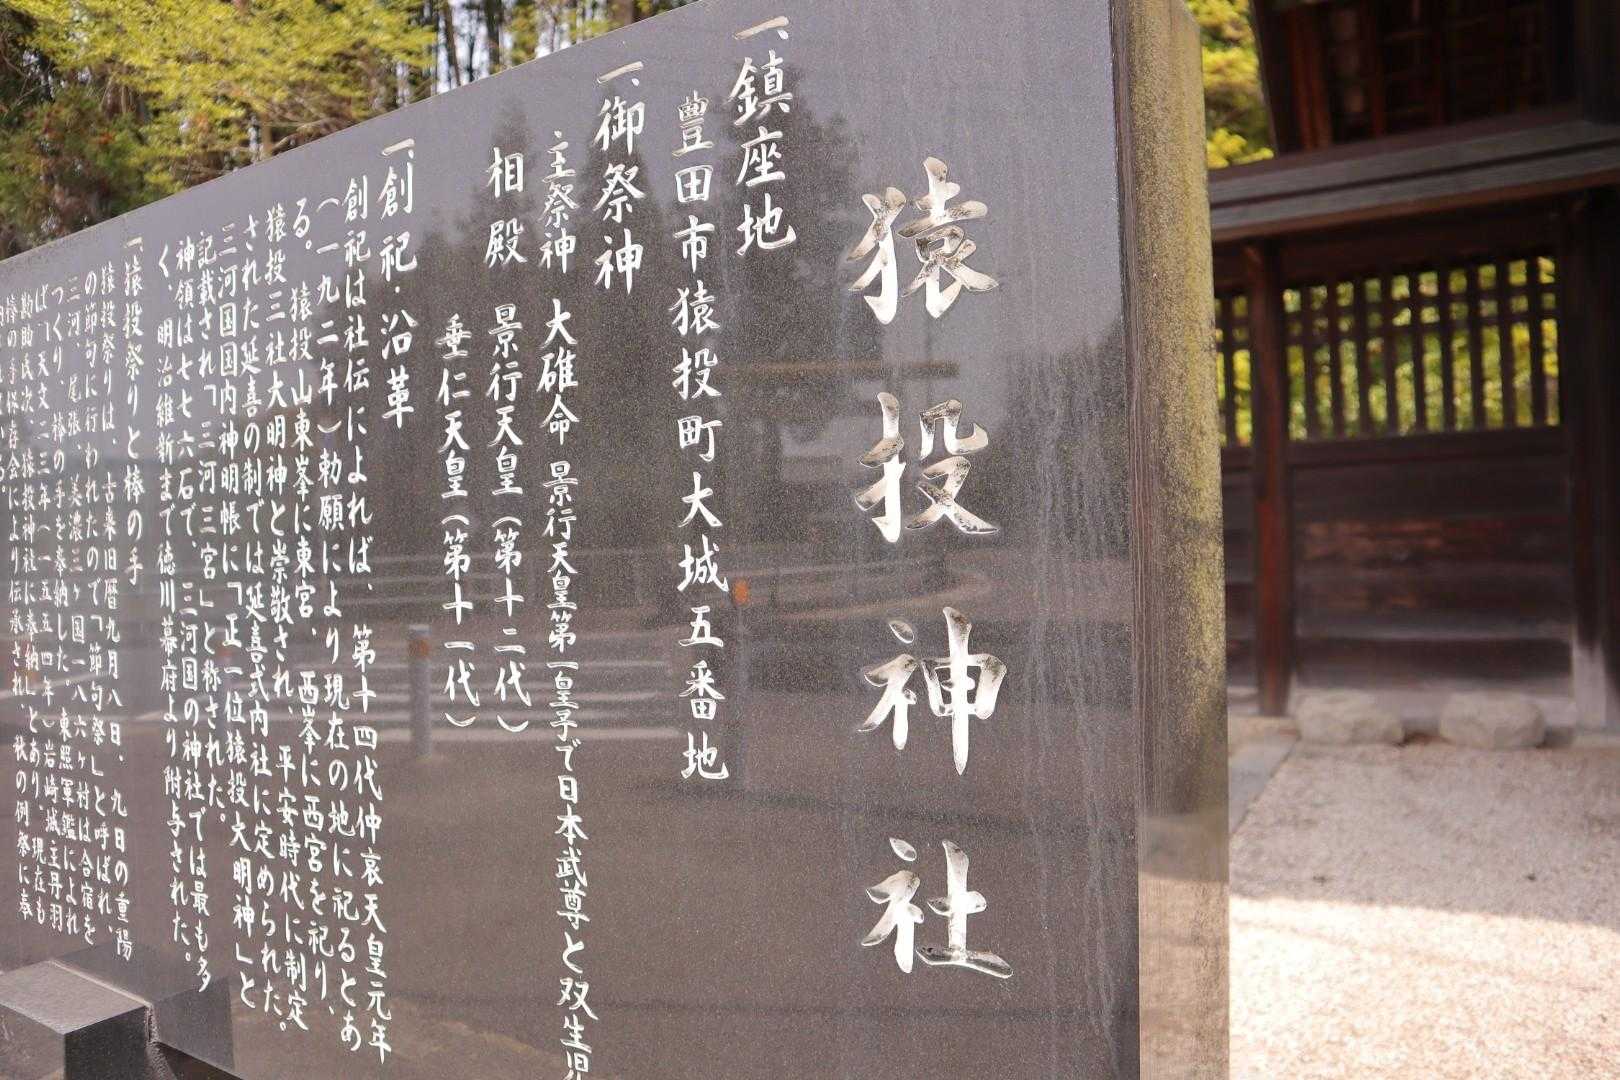 猿投神社
一、鎮座地
豊田市猿投町大城五番地
一、御祭神
主祭神 大碓命 景行天皇第一皇子で日本武尊と双生児
相殿 景行天皇(第十二代)
垂仁天皇(第十一代)
一、創祀・沿革
創祀は社伝によれば、第十四代仲哀天皇元年
(一九二年)勅願により現在の地に祀るとあ
る。猿投山東峯に東宮、西峯に西宮を祀り、
猿投三社大明神と崇敬され、平安時代に制定
された延喜の制では延喜式内社に定められた。
三河国国内神明帳に「正一位猿投大明神」と
記載され「三河三宮」と称された。
神領は七七六石で、三河国の神社では最も多
く、明治維新まで徳川幕府より附与された。
一、猿投祭りと棒の手
猿投祭りは、古来旧暦九月八日、九日の重陽
の節句に行われたので「節句祭」と呼ばれ、
三河、尾張、美濃三ヶ国一八六ヶ村は合宿を
つくり、棒の手を奉納した。東照軍鑑によれ
ば、「天文二三年(一五五四年)岩崎城主丹羽
勘助氏次、猿投神社に奉納」とあり、現在も
棒の手保存会により伝承され、秋の例祭に奉